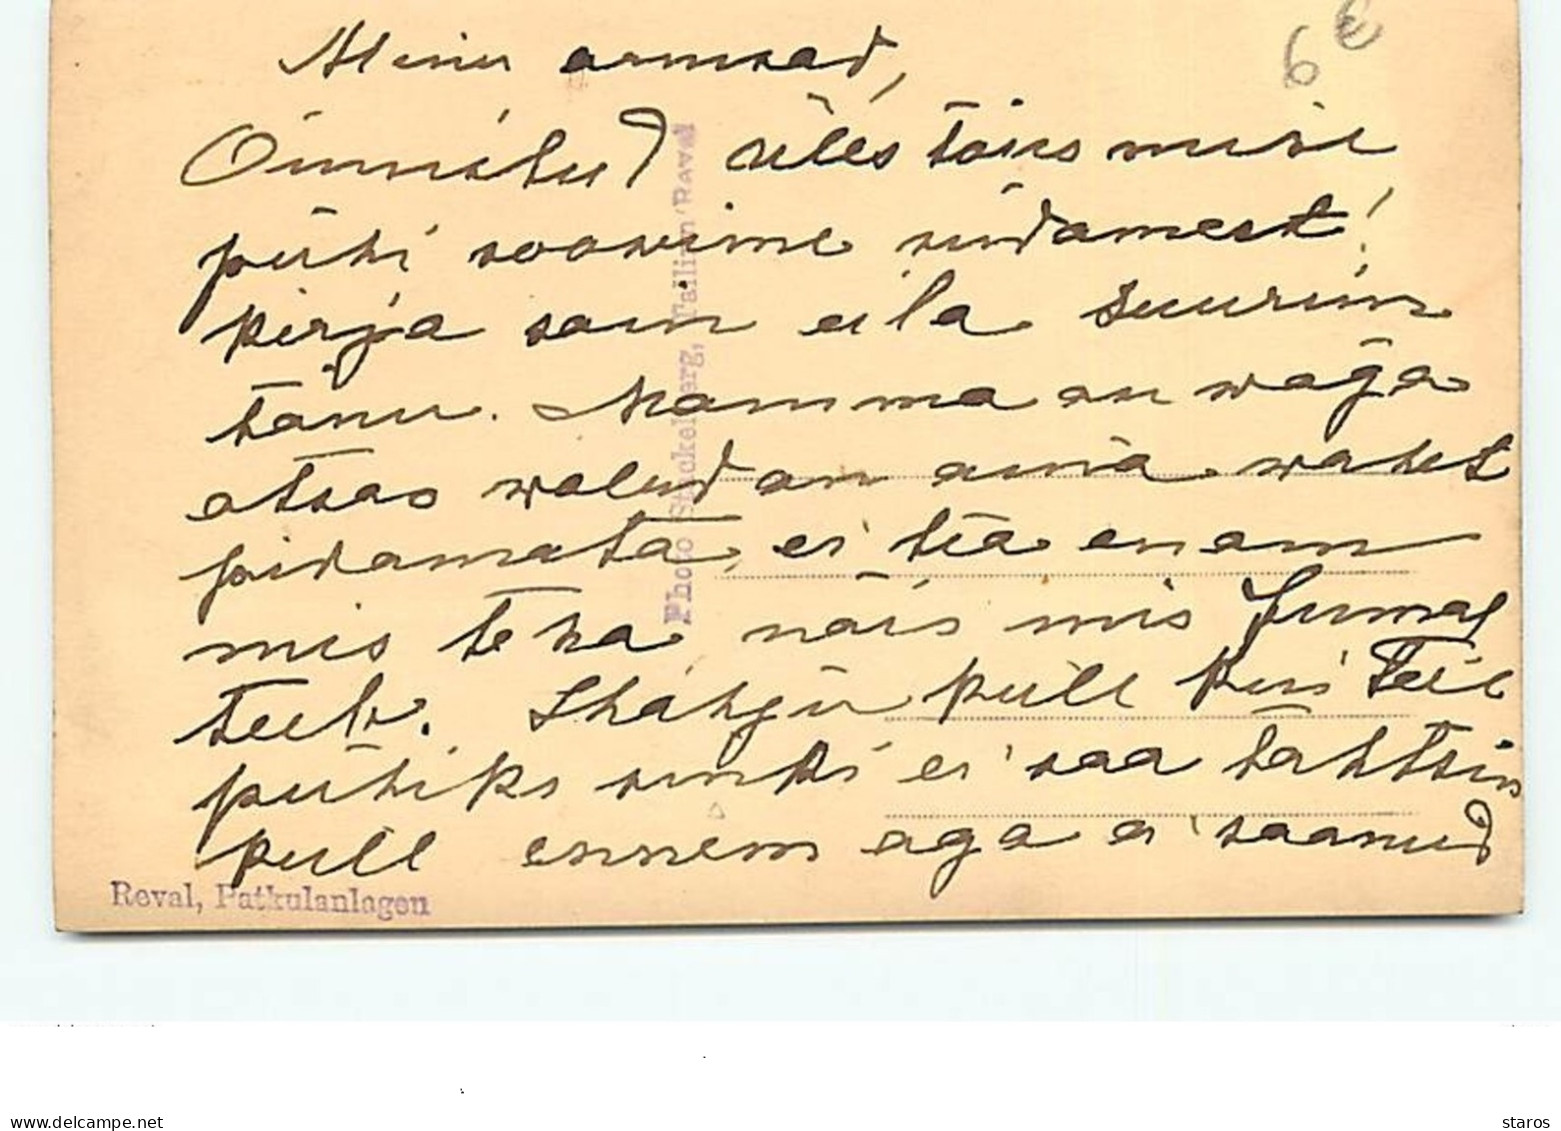 Minu armsad,
Õnnistud ülestõusmise
pühi soowime südamest!
kirja sain eila suurim
tänu. Mamma on waga
otsas walud on aina wahet
pidamata, ei tea enam
mis teha näis mis Jumal
teeb. küll kui Teil
pühiks sinki ei saa tahtsin
küll ennem aga ei saanud
6 €
Photo Stackelberg, Tallinn/Reval
Reval, Patkulanlagen
www.delcampe.net
staros